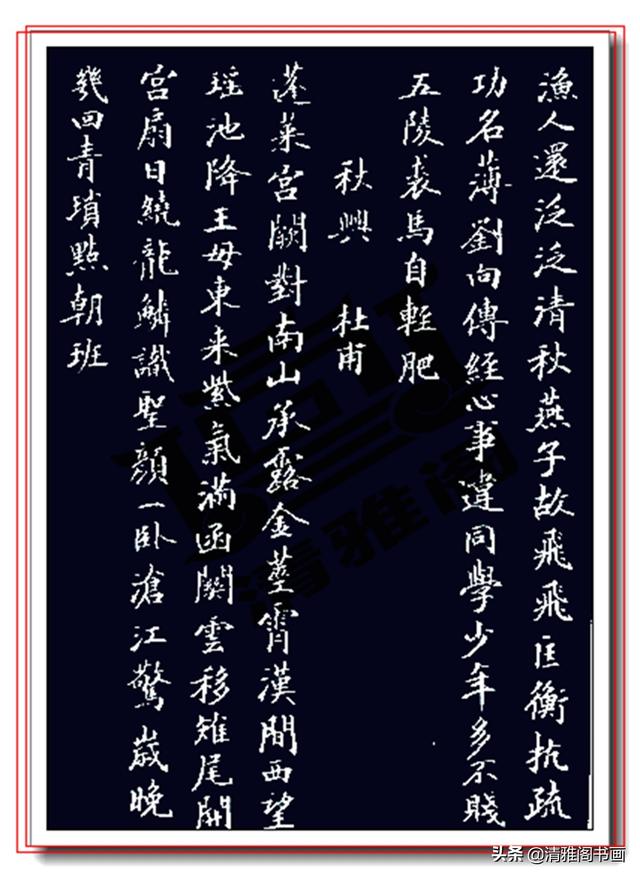 漁人還泛泛清秋燕子故飛飛匡衡抗疏
功名薄劉向傳經心事違同學少年多不賤
五陵裘馬自輕肥
秋興 杜甫
蓬萊宮闕對南山承露金莖霄漢間西望
瑶池降王母東来紫氣滿函關雲移雉尾開
宮扇日繞龍鱗識聖顏一卧滄江驚歲晚
幾回青瑣點朝班
清雅阁
头条@清雅阁书画